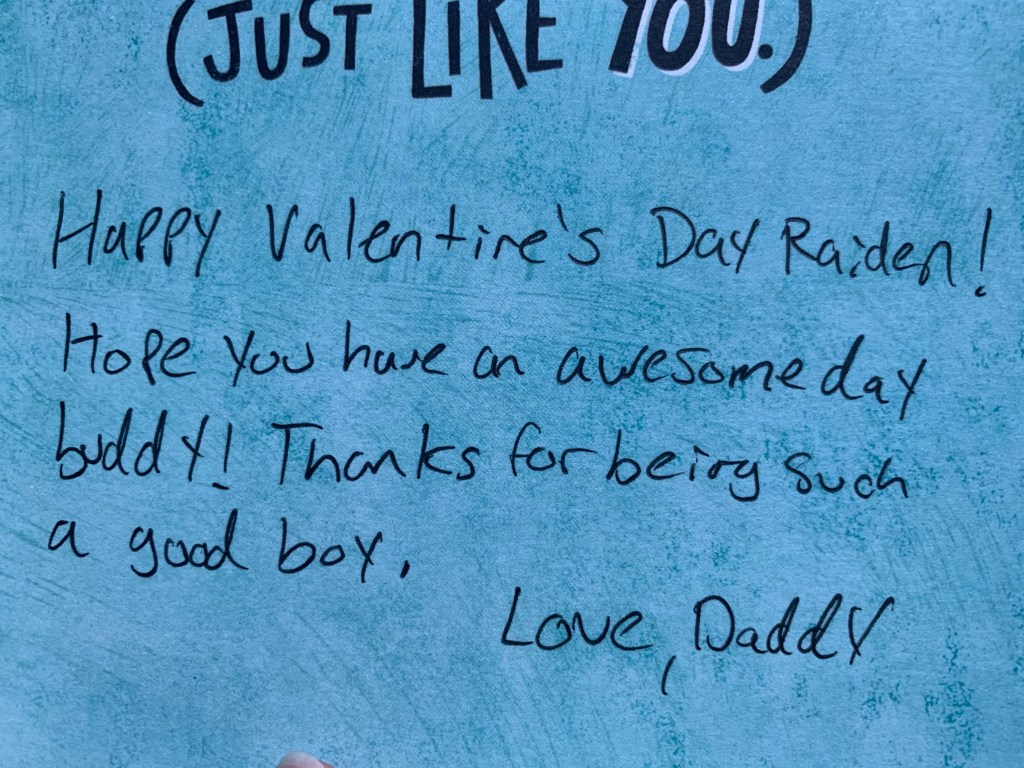 (JUST LIKE YOU.)
Happy Valentine's Day Raiden!
Hope you have an awesome day
buddy! Thanks for being such
a good boy.
Love, Daddy